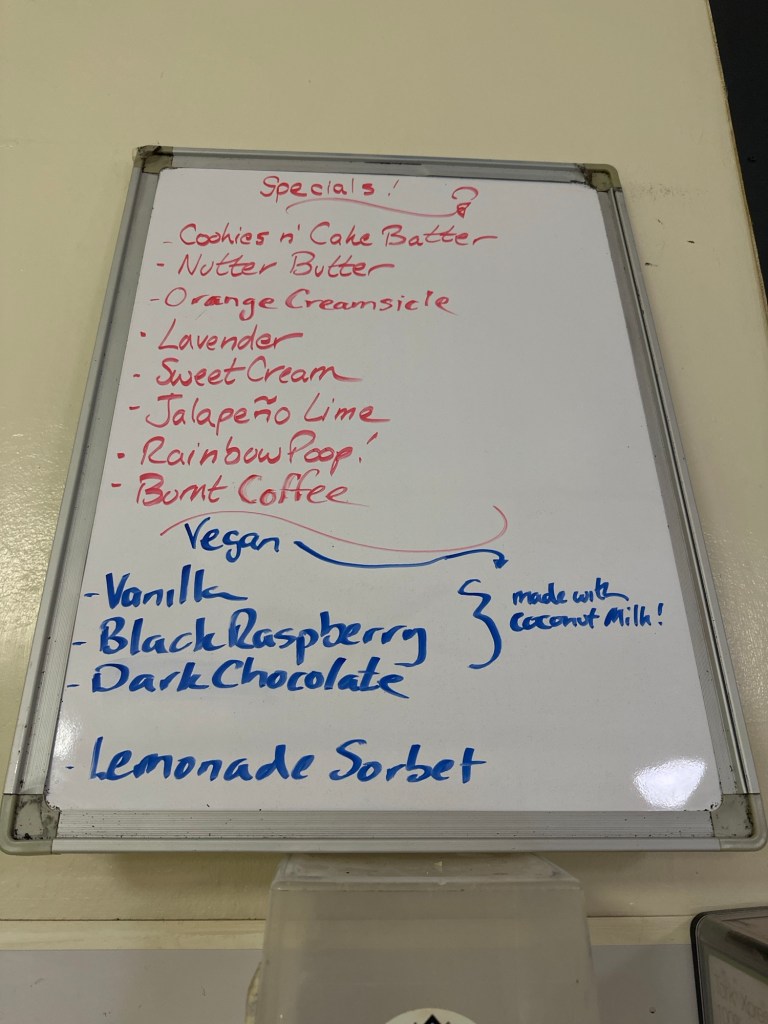 Specials!
- Cookies n' Cake Batter
- Nutter Butter
- Orange Creamsicle
- Lavender
- Sweet Cream
- Jalapeño Lime
- Rainbow Poop!
- Burnt Coffee
Vegan
- Vanilla
- Black Raspberry
- Dark Chocolate
made with
Coconut Milk!
- Lemonade Sorbet